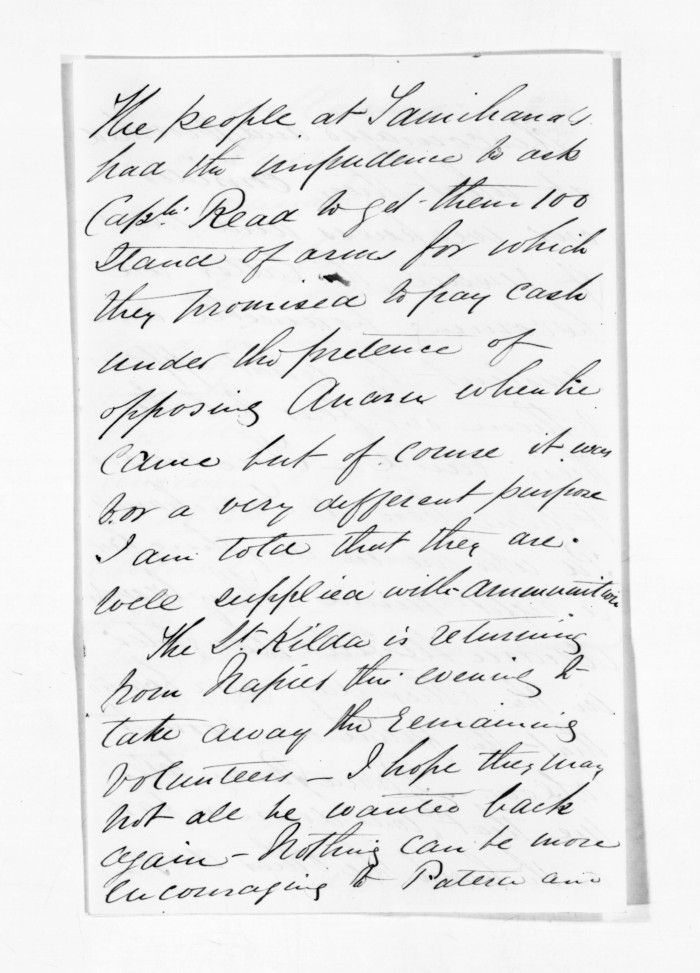 The people at Tamihana's
had the impudence to ask
Captn. Read to get them 100
stand of arms for which
they promised to pay cash
under the pretence of
opposing Anaru when he
came but of course it was
for a very different purpose
I am told that they are
well supplied with ammunition
The St. Kilda is returning
from Napier this evening to
take away the remaining
volunteers – I hope they may
not all be wanted back
again – Nothing can be more
encouraging to Patera and